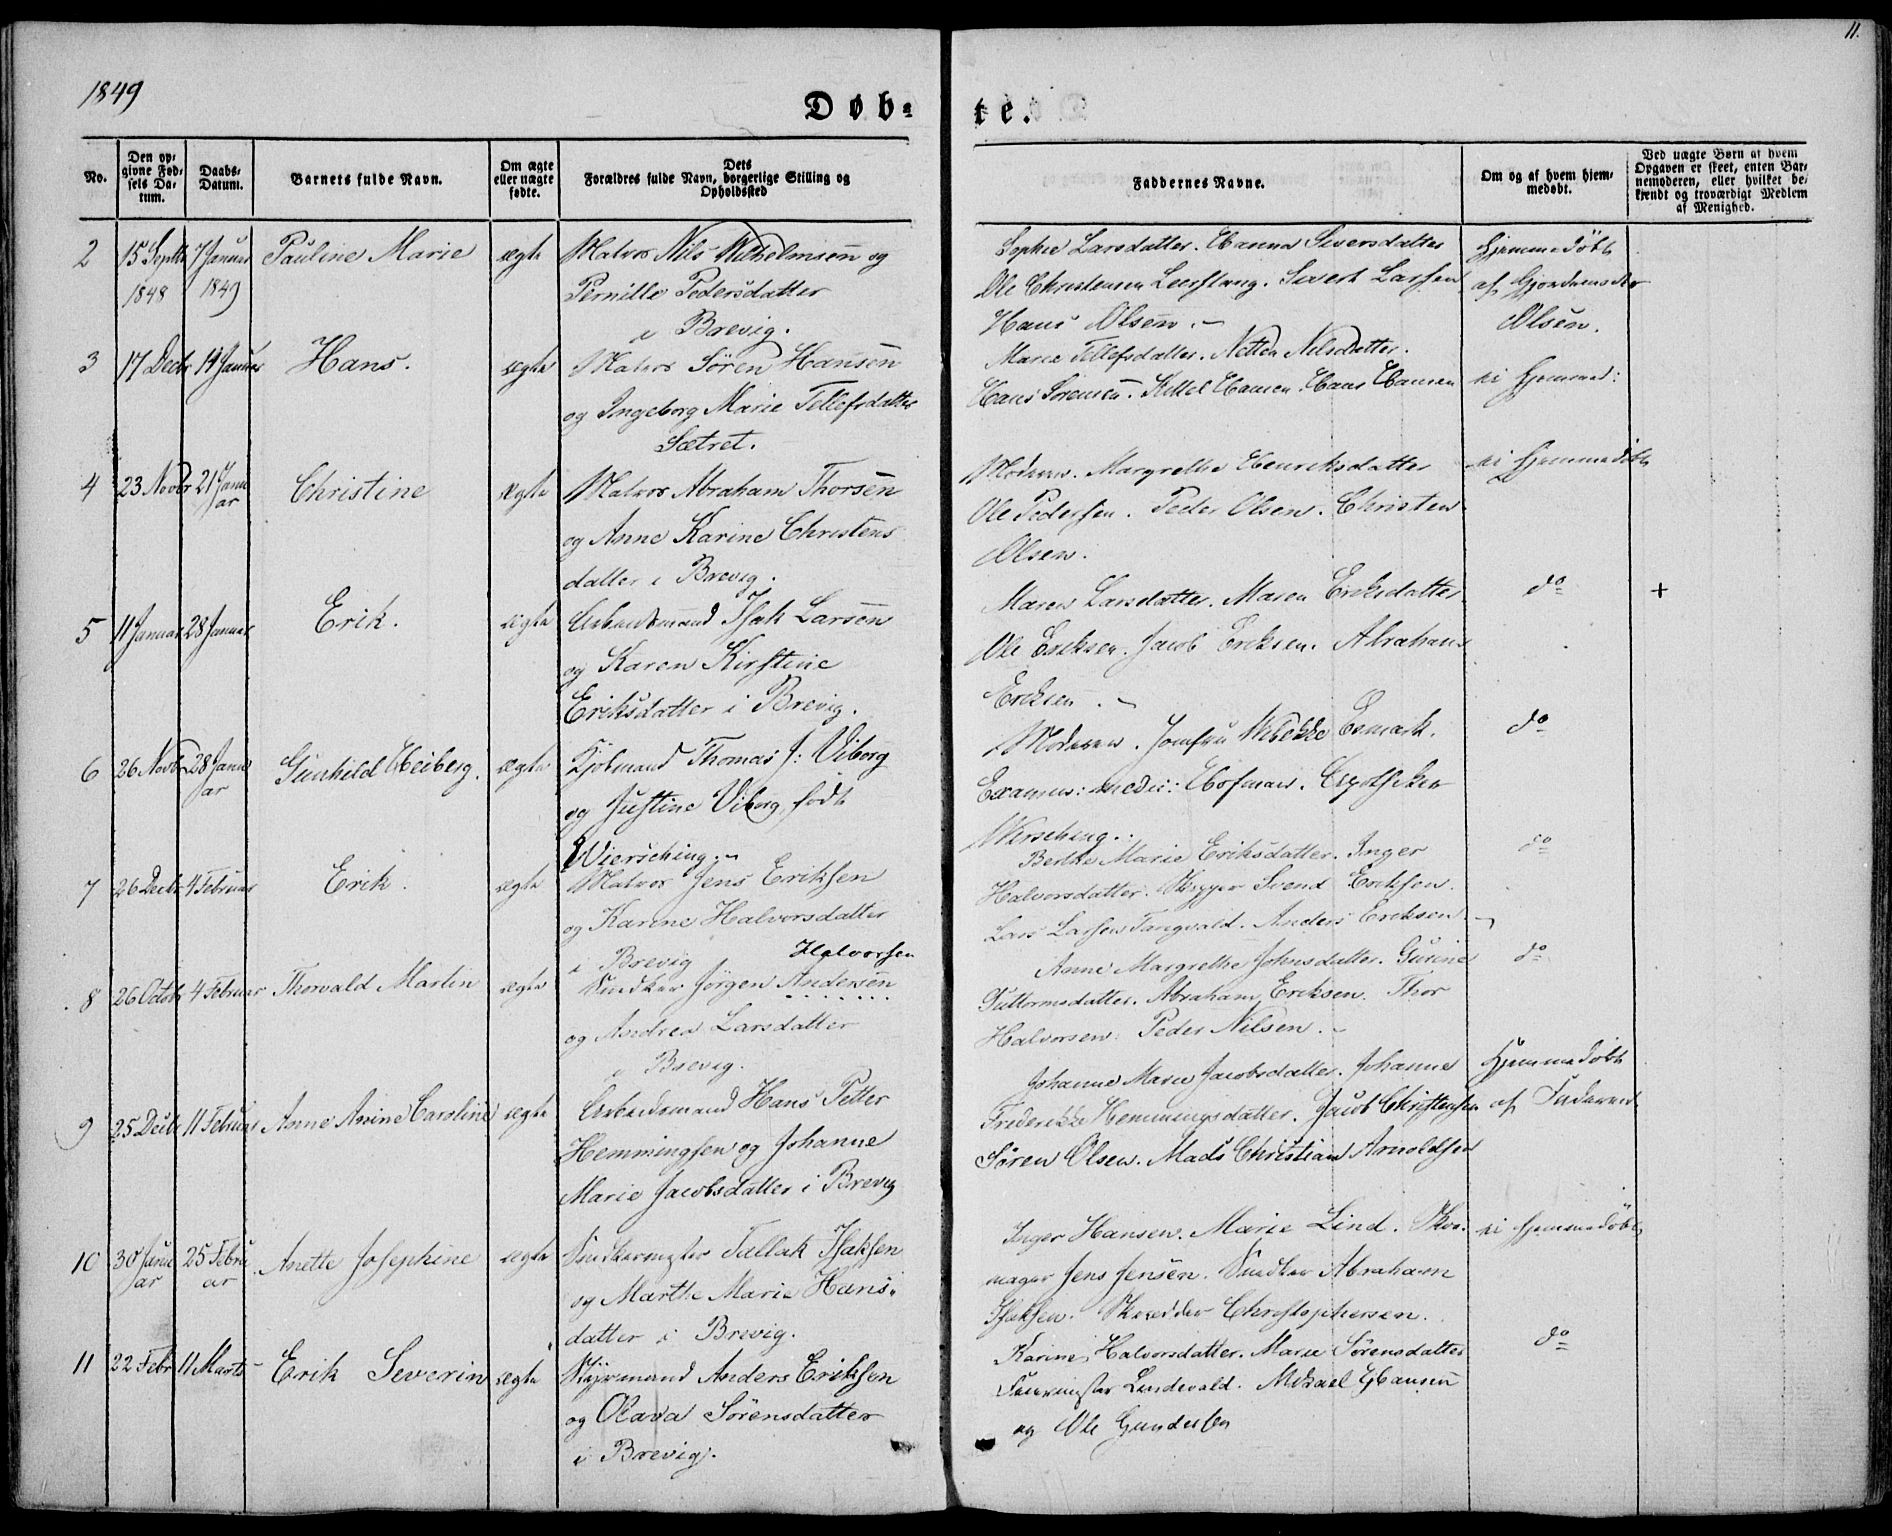 11.
1849
Døb-
te.
No.
Den op-
givne Fød-
sels Da-
tum.
Daabs-
Datum.
Barnets fulde Navn.
Om ægte
eller uægte
fødte.
Dets
Forældres fulde Navn, borgerlige Stilling og
Opholdssted
Faddernes Navne.
Om og af hvem hjem-
medøbt.
Ved uægte Børn af hvem
Opgaven er skeet, enten Bar-
nemoderen, eller hvilket be-
kjendt og troværdigt Medlem
af Menighed.
2
15 Septbr
1848
7 Januar
1849
Pauline Marie
ægte
Matros Nils Wilhelmsen og
Pernille Pedersdatter
i Brevig.
Sophie Larsdatter. Hanna Siversdatter
Ole Christensen Leerstang. Sivert Larsen
Hans Olsen.
Hjemmedøbt
af Gjordemoder
Olsen.
3
17 Decbr
14 Januar
Hans.
ægte
Matros Søren Hansen
og Ingeborg Marie Tellefsdatter
Sætret.
Maria Tellefsdatter. Nettea Nilsdatter.
Hans Sørensen. Kittel Hansen. Hans Hansen
ei hjemmed:
4
23 Novbr
21 Janu
ar
Christine
ægte
Matros Abraham Thorsen
og Anne Karine Christens
datter i Brevig.
Moderen. Margrethe Henriksdatter
Ole Pedersen. Peder Olsen. Christen
Olsen.
ei hjemmedøbt
5
11 Januar
28 Januar
Erik.
ægte
Arbeidsmand Isak Larsen
og Karen Kirstine
Eriksdatter i Brevig.
Maren Larsdatter. Maren Eriksdatter.
Ole Eriksen. Jacob Eriksen. Abraham
Eriksen.
do
+
6
26 Novbr
28 Janu
ar
Gunhild Heiberg.
ægte
Kjøbmand Thomas J: Viborg
og Justine Viborg født
Wiersching.
Moderen. Jomfru Wibekke Esmark.
Examin: medic: Hofman. Apotheker
Wersching.
do
7
26 Decbr
4 Februar
Erik.
ægte
Matros Jens Eriksen
og Karine Halvorsdatter
i Brevig
Berthe Marie Eriksdatter. Inger
Halvorsdatter. Skipper Svend Eriksen.
Lars Larsen Tangvald. Anders Eriksen.
do
8
26 Octobr
4 Februar
Thorvald Martin
ægte
Halvorsen
Snedker Jørgen Andersen
og Andrea Larsdatter
i Brevig.
Anne Margrethe Johnsdatter. Gurine
Guttormsdatter. Abraham Eriksen. Thor
Halvorsen. Peder Nilsen.
do
9
25 Decbr
11 Februar
Anne Anine Caroline
ægte
Arbeidsmand Hans Petter
Hemmingsen og Johanne
Marie Jacobsdatter i Brevig
Johanne Marie Jacobsdatter. Johanne
Frederikke Hemmingsdatter. Jacob Christensen
Søren Olsen. Mads Christian Arnoldsen
Hjemmedøbt
af Faderen
10
30 Janu
ar
25 Febru
ar
Anette Josephine
ægte
Snedkermester Tallak Isaksen
og Marthe Marie Hans-
datter i Brevig.
Inger Hansen. Marie Lind. Skoe-
mager Jens Jensen. Snedker Abraham
Isaksen. Skrædder Christophersen.
ei hjemmedøbt
11
22 Febr
11 Marts
Erik Severin
ægte
Styrmand Anders Eriksen
og Olava Sørensdatter
i Brevig.
Karine Halvorsdatter. Marie Sørensdatter
Lindevald. Mikael Hansen
og Ole Gundersen
do